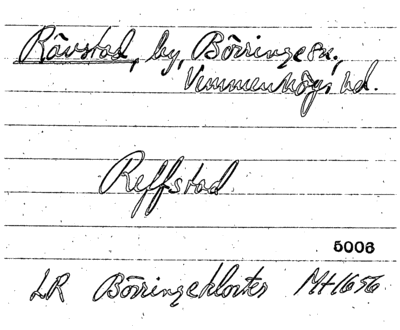 Råvstad, by, Börringe sn.,
Vemmenhögs hd.
Reffstad
5006
LR Börringekloster Mt 1656